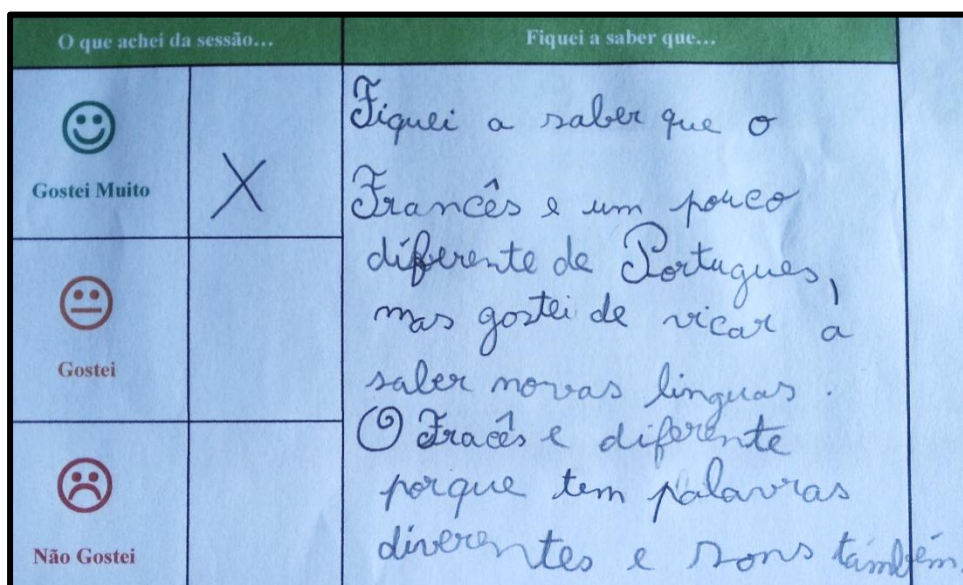 O que achei da sessão...
Fiquei a saber que...
Gostei Muito
X
Gostei
Não Gostei
Fiquei a saber que o
Francês e um pouco
diferente de Portugues,
mas gostei de vicar à
saber novas linguas.
O Fracês e diferente
porque tem palavras
diverentes e sons também.